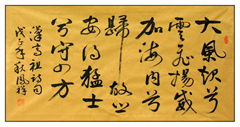 大風起兮
雲飛揚威
加海内兮
歸故鄉
安得猛士
兮守四方
漢高祖詩句
戊子年秋鳳祥